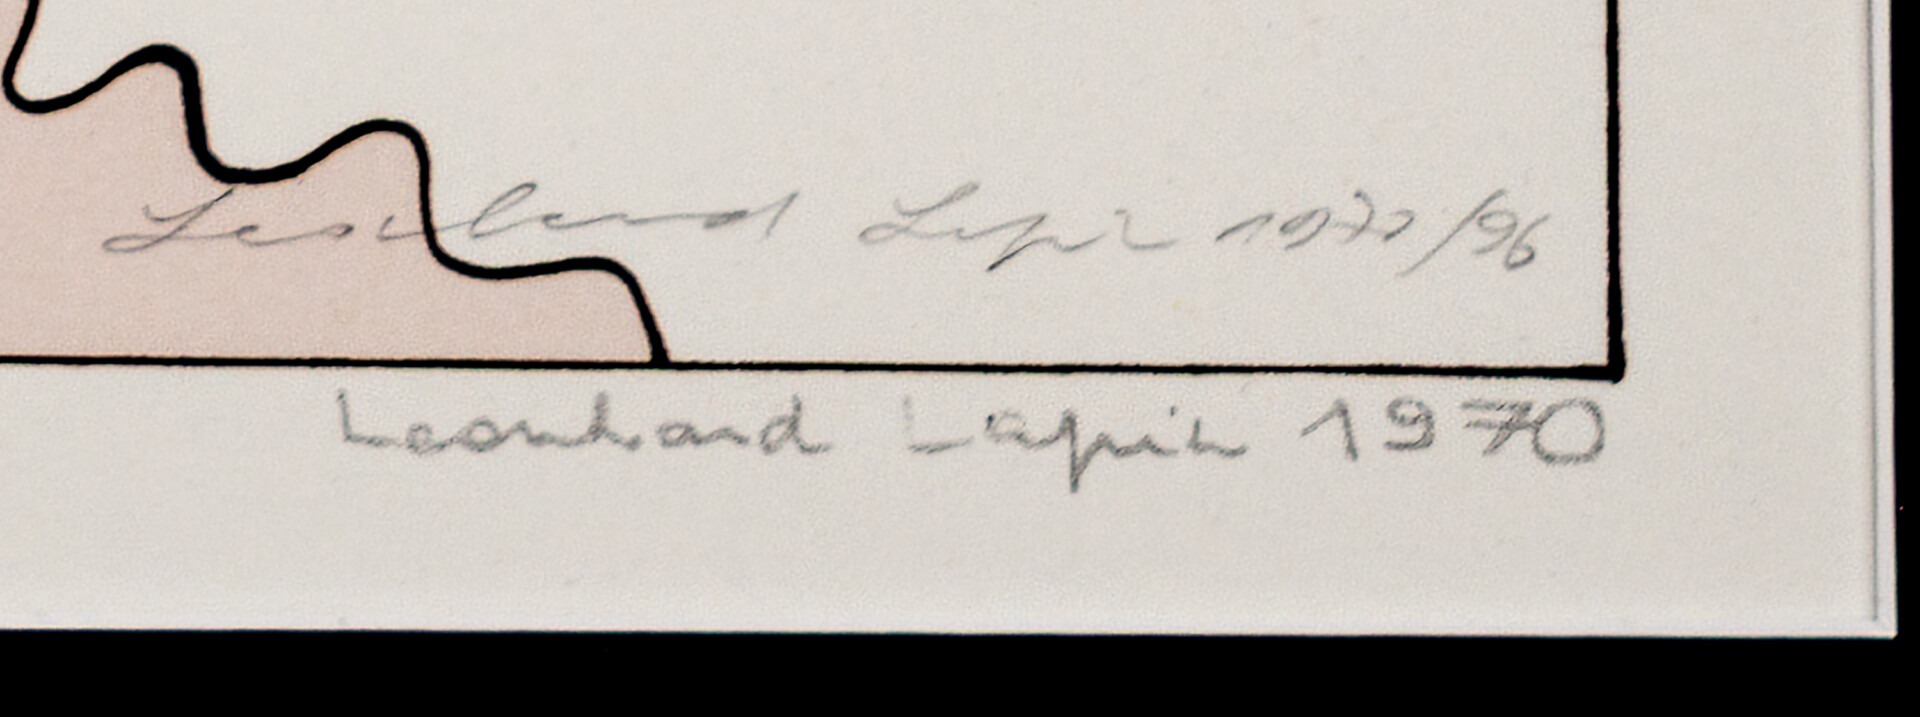 Leonhard Lapin 1970/96
Leonhard Lapin 1970